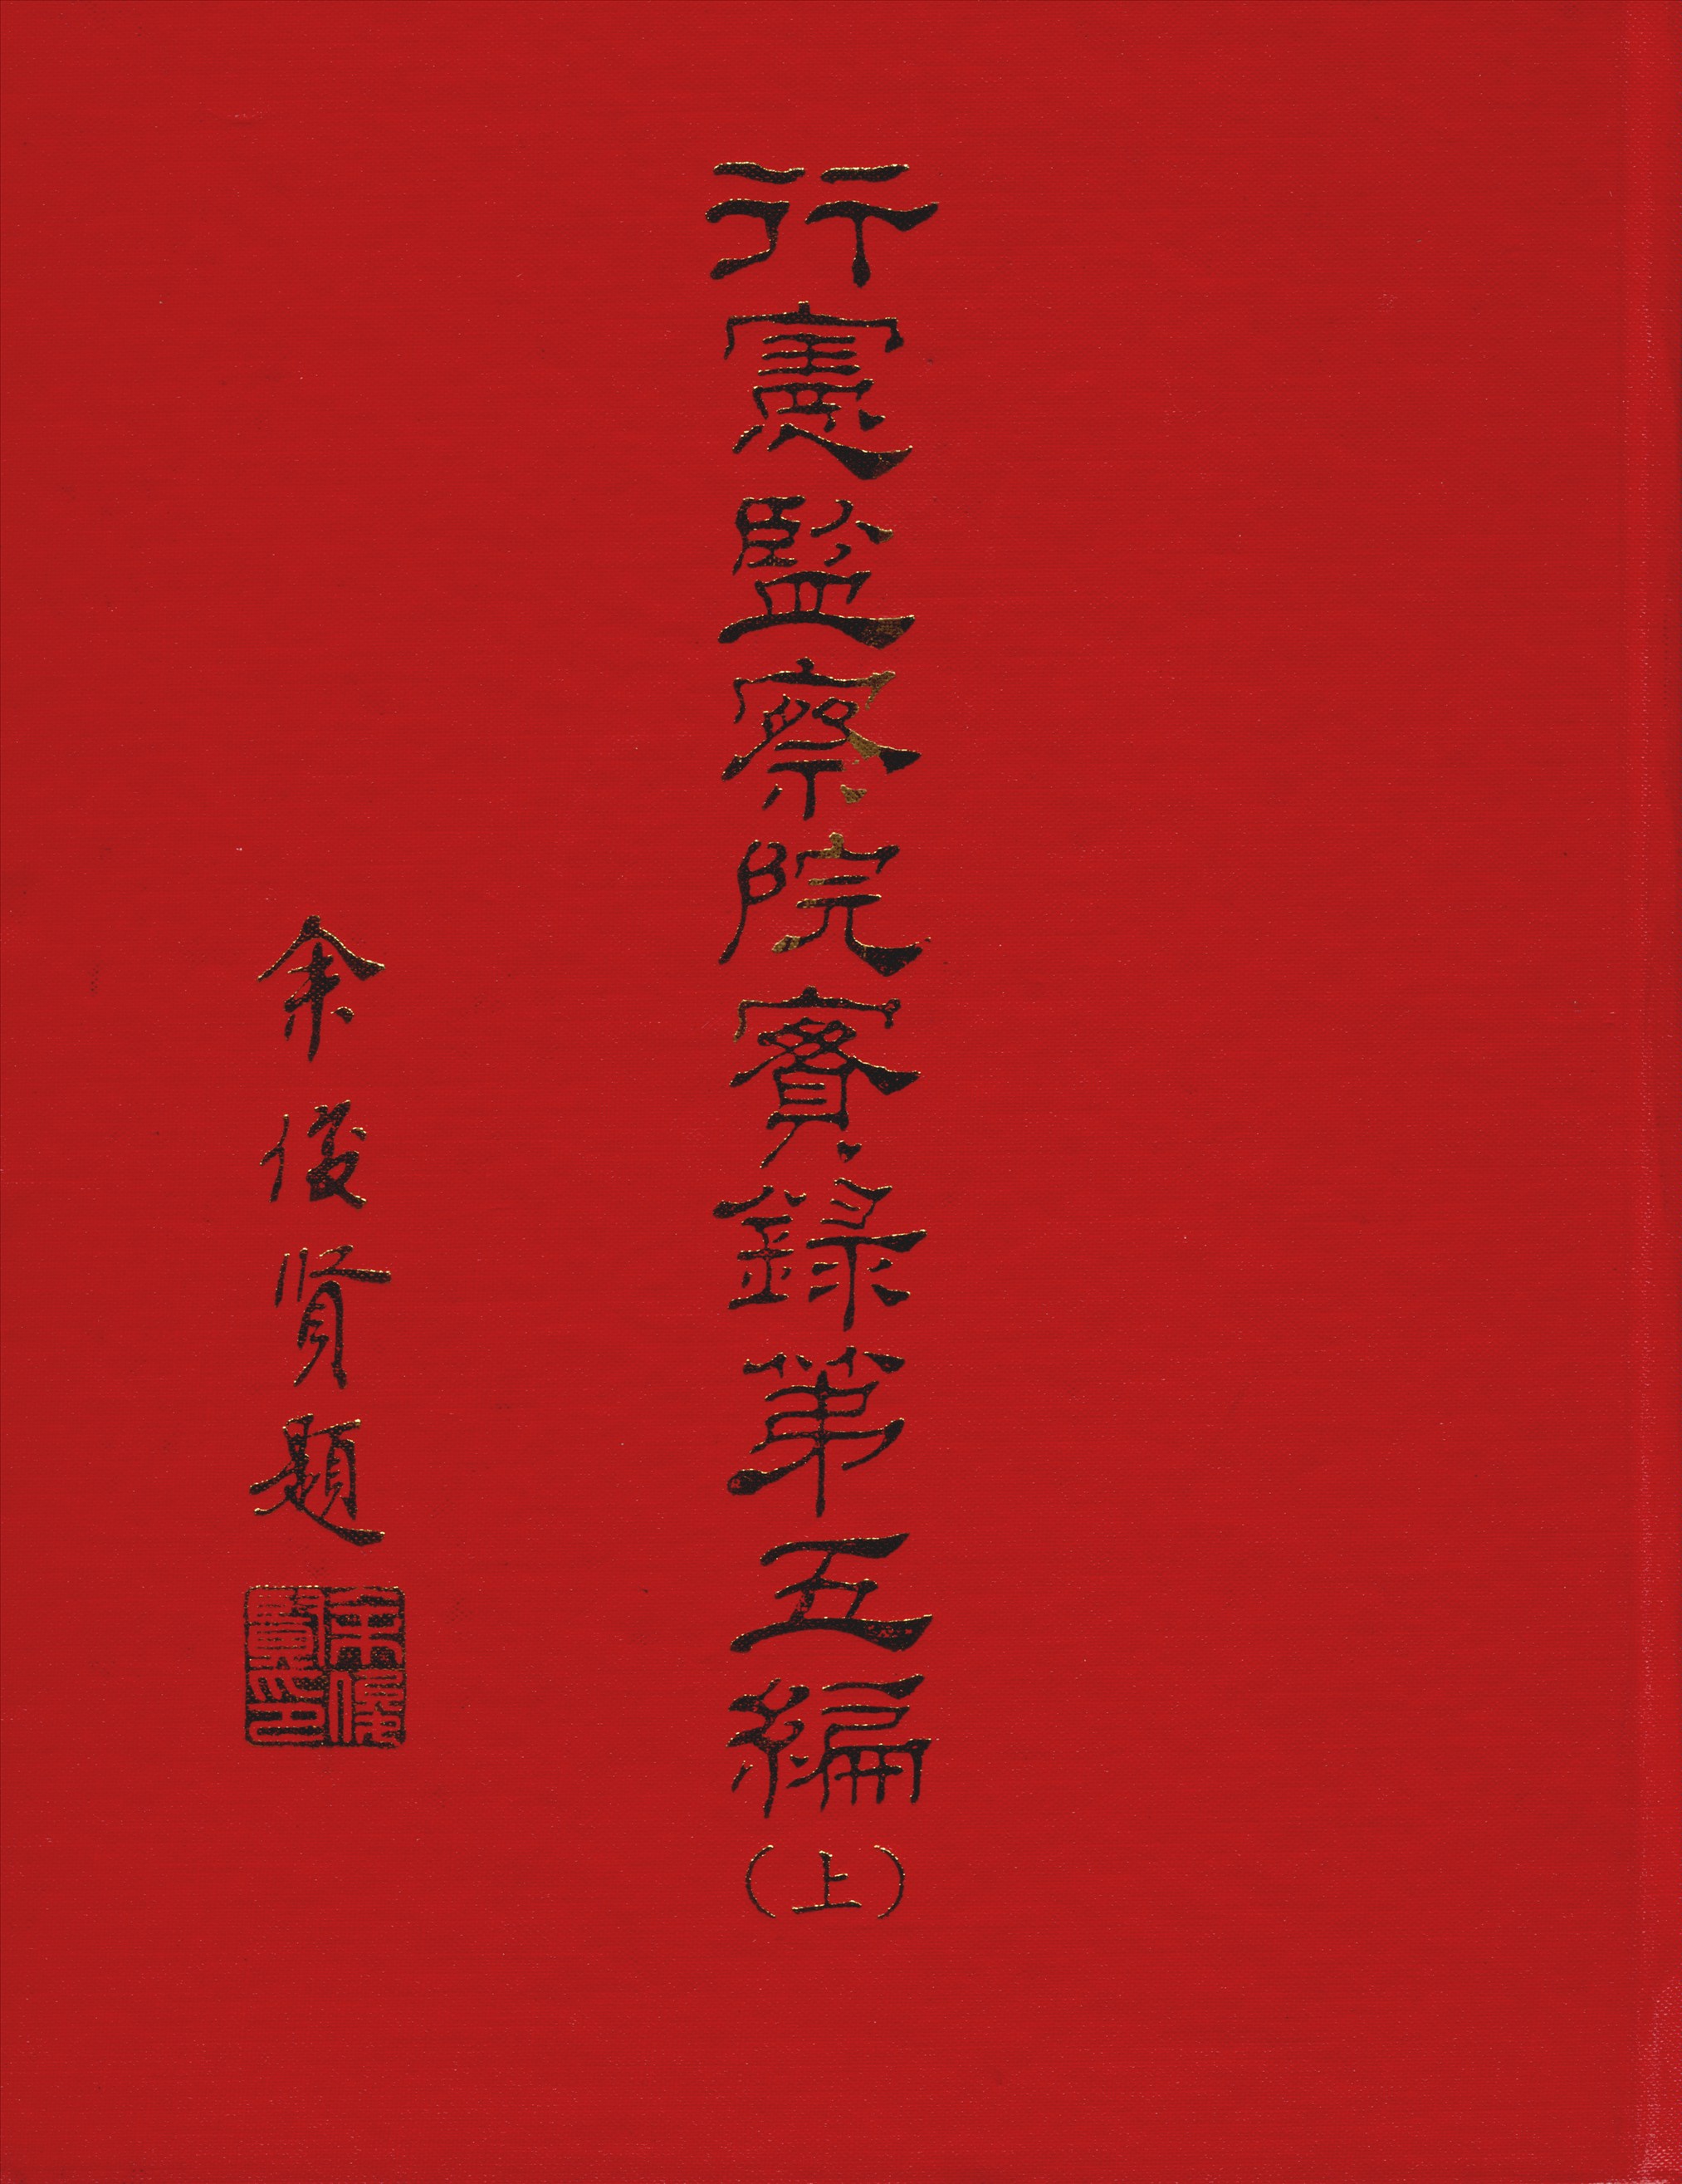 行憲監察院實錄第五編(上)
余俊賢題
余俊賢印